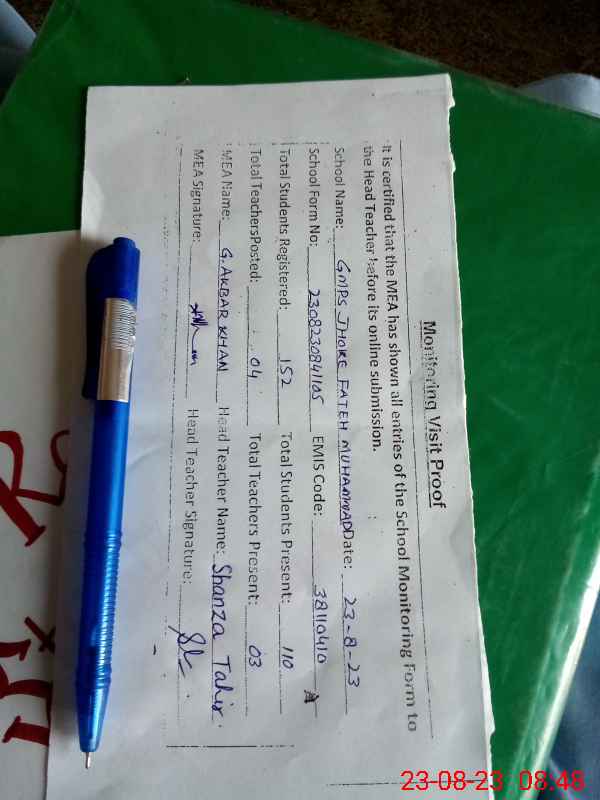 Monitoring Visit Proof
It is certified that the MEA has shown all entries of the School Monitoring Form to
the Head Teacher before its online submission.
School Name: GMPS JHOKE FATEH MUHAMMAD Date: 23-8-23
School Form No: 2308230841105 EMIS Code: 38110410
Total Students Registered: 152 Total Students Present: 110
Total Teachers Posted: 04 Total Teachers Present: 03
MEA Name: G. AKBAR KHAN Head Teacher Name: Shanza Tahir
MEA Signature: Head Teacher Signature:
23-08-23 08:48